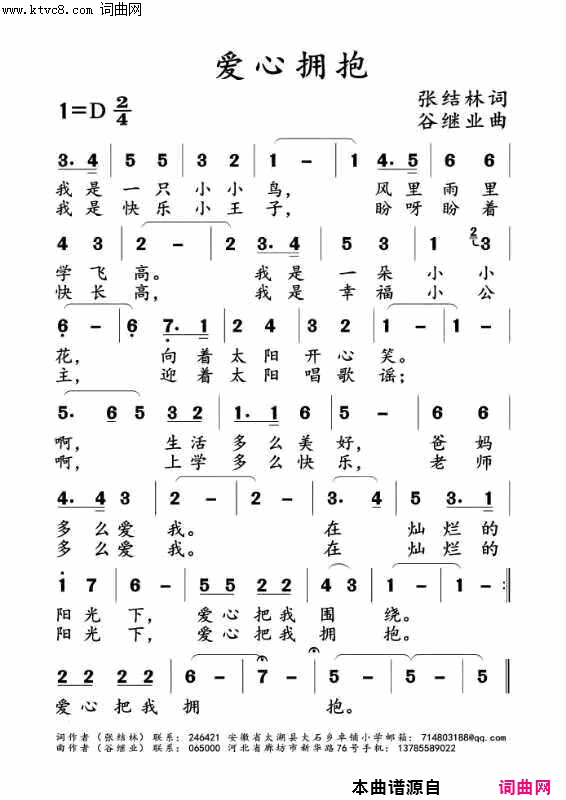 www.ktvc8.com 词曲网
爱心拥抱
1=D 2/4
张结林词
谷继业曲
3. 4 | 5 5 | 3 2 | 1 - | 1 | 4. 5 | 6 6 |
我是一只小小鸟，风里雨里
我是快乐小王子，盼呀盼着
4 3 | 2 - | 2 | 3. 4 | 5 3 | 1 2 3 |
学飞高。我是一朵小小
快长高，我是幸福小公
6 - | 6 | 7. 1 | 2 4 | 3 2 | 1 - | 1 - |
花，向着太阳开心笑。
主，迎着太阳唱歌谣；
5. 6 5 | 3 2 | 1. 1 6 | 5 - | 6 6 |
啊，生活多么美好，爸妈
啊，上学多么快乐，老师
4. 4 3 | 2 - | 2 - | 3. 4 | 5 3. 1 |
多么爱我。在灿烂的
多么爱我。在灿烂的
1 7 | 6 - | 5 5 2 2 | 4 3 | 1 - | 1 - :‖
阳光下，爱心把我围绕。
阳光下，爱心把我拥抱。
2 2 | 2 2 | 6 - | 7 - | 5 - | 5 - | 5 ‖
爱心把我拥抱。
词作者（张结林）联系：246421 安徽省太湖县大石乡卓铺小学邮箱：714803188@qq.com
曲作者（谷继业）联系：065000 河北省廊坊市新华路76号手机：13785589022
本曲谱源自 词曲网